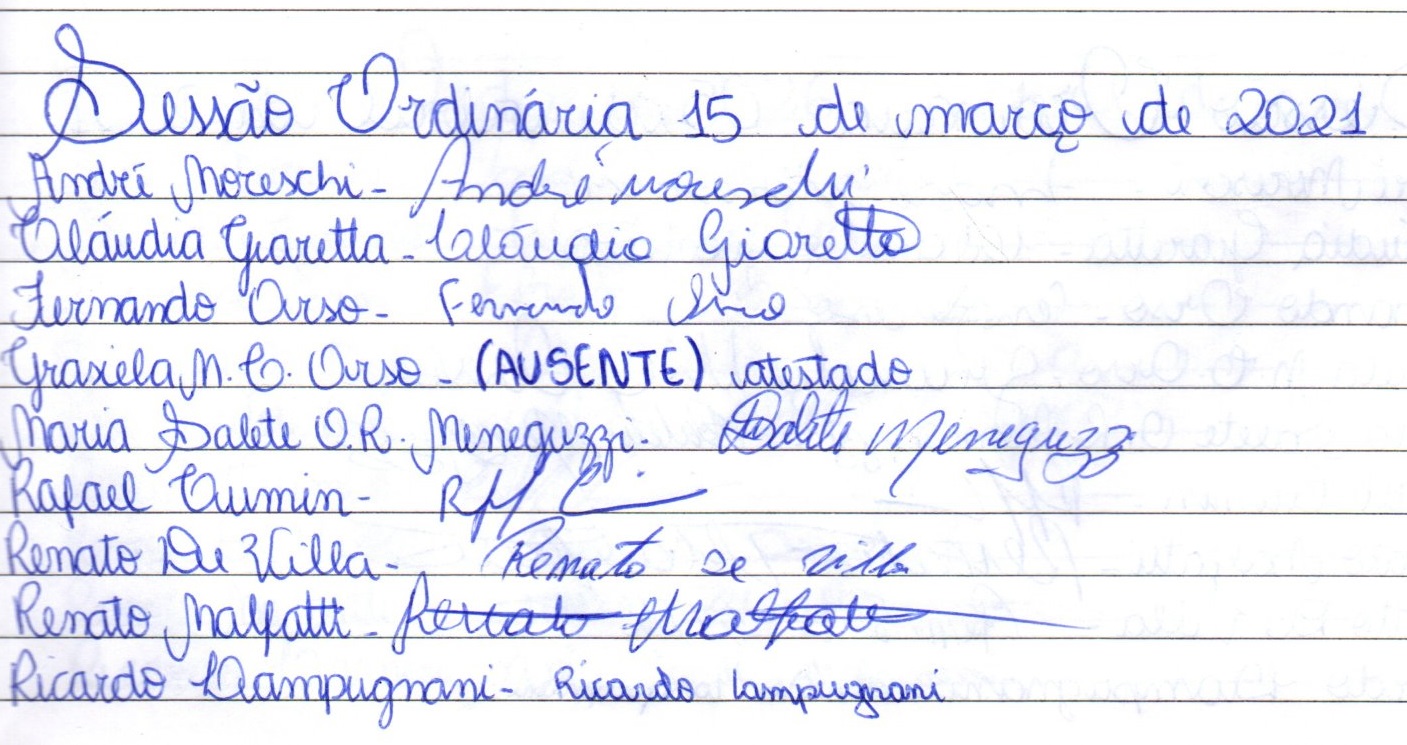 Sessão Ordinária 15 de março de 2021
André Moreschi - André Moreschi
Cláudia Giaretta - Cláudia Giaretta
Fernando Orso - Fernando Orso
Graxiela M. C. Orso - (AUSENTE) atestado
Maria Salete O.R. Meneguzzi - Salete Meneguzzi
Rafael Cumin -
Renato De Villa - Renato De Villa
Renato Malfatti - Renato Malfatti
Ricardo Lampugnani - Ricardo Lampugnani